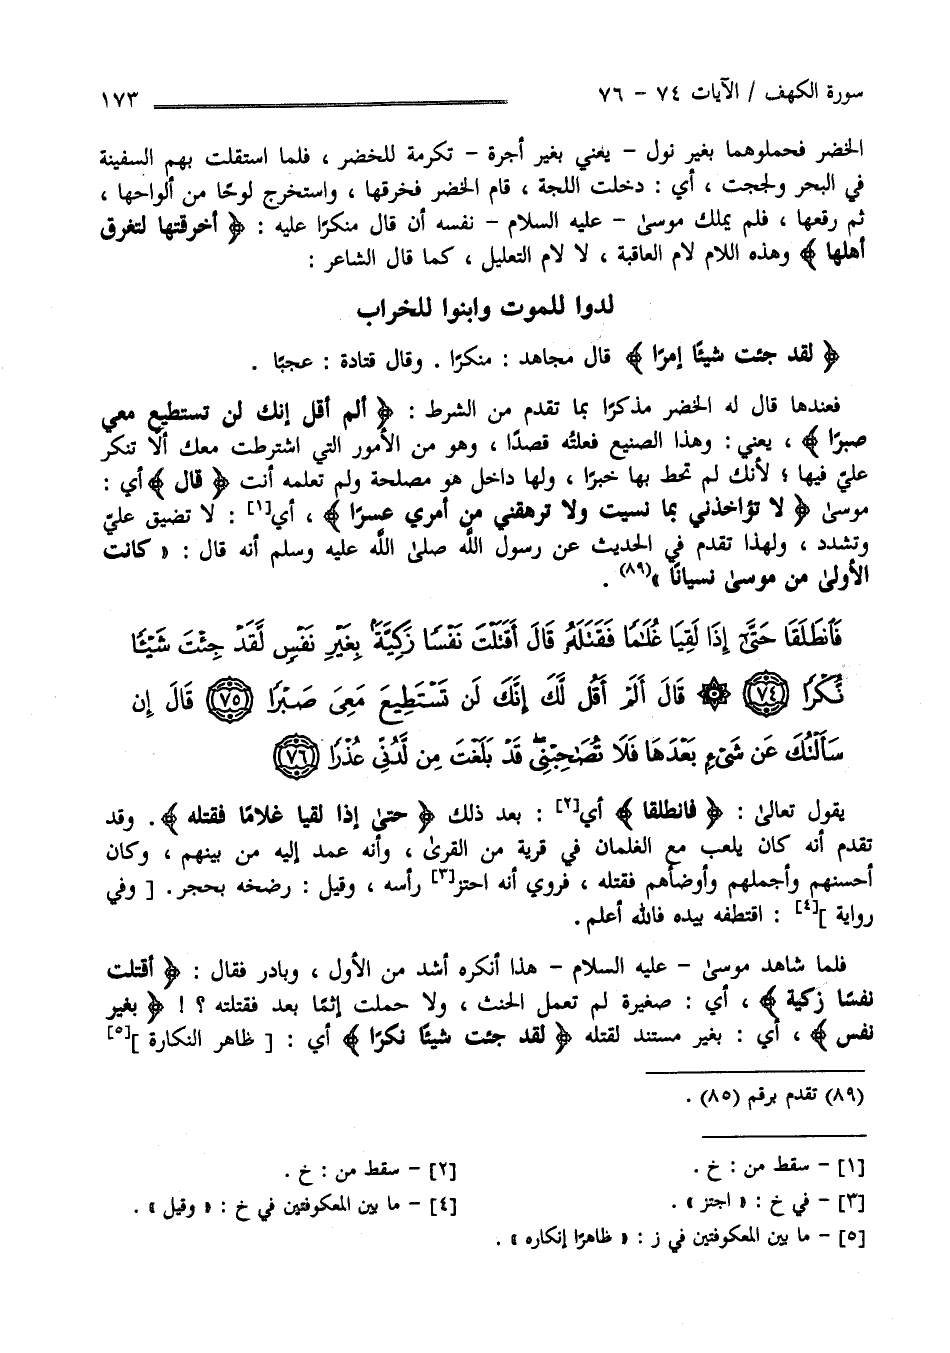 سورة الكهف / الآيات ٧٤ - ٧٦ ١٧٣
الخضر فحملوهما بغير نول - يعني بغير أجرة - تكرمة للخضر ، فلما استقلت بهم السفينة
في البحر ولججت ، أي : دخلت اللجة ، قام الخضر فخرقها ، واستخرج لوحًا من ألواحها ،
ثم رقعها ، فلم يملك موسىٰ - عليه السلام - نفسه أن قال منكرًا عليه : ﴿ أخرقتها لتغرق
أهلها ﴾ وهذه اللام لام العاقبة ، لا لام التعليل ، كما قال الشاعر :
لدوا للموت وابنوا للخراب
﴿ لقد جئت شيئًا إمرًا ﴾ قال مجاهد : منكرًا . وقال قتادة : عجبًا .
فعندها قال له الخضر مذكرًا بما تقدم من الشرط : ﴿ ألم أقل إنك لن تستطيع معي
صبرًا ﴾ ، يعني : وهذا الصنيع فعلتُه قصدًا ، وهو من الأمور التي اشترطت معك ألَّا تنكر
عليّ فيها ؛ لأنك لم تحط بها خبرًا ، ولها داخل هو مصلحة ولم تعلمه أنت ﴿ قال ﴾ أي :
موسىٰ ﴿ لا تؤاخذني بما نسيت ولا ترهقني من أمري عسرًا ﴾ ، أي[١] : لا تضيق عليّ
وتشدد ، ولهذا تقدم في الحديث عن رسول اللَّه صلىٰ اللَّه عليه وسلم أنه قال : « كانت
الأولىٰ من موسىٰ نسيانًا »(٨٩) .
فَٱنطَلَقَا حَتَّىٰٓ إِذَا لَقِيَا غُلَـٰمًا فَقَتَلَهُۥ قَالَ أَقَتَلْتَ نَفْسًا زَكِيَّةًۢ بِغَيْرِ نَفْسٍ لَّقَدْ جِئْتَ شَيْـًٔا
نُّكْرًا ٧٤ ۞ قَالَ أَلَمْ أَقُل لَّكَ إِنَّكَ لَن تَسْتَطِيعَ مَعِىَ صَبْرًا ٧٥ قَالَ إِن
سَأَلْتُكَ عَن شَىْءٍۭ بَعْدَهَا فَلَا تُصَـٰحِبْنِى ۖ قَدْ بَلَغْتَ مِن لَّدُنِّى عُذْرًا ٧٦
يقول تعالىٰ : ﴿ فانطلقا ﴾ أي[٢] : بعد ذلك ﴿ حتىٰ إذا لقيا غلامًا فقتله ﴾ . وقد
تقدم أنه كان يلعب مع الغلمان في قرية من القرىٰ ، وأنه عمد إليه من بينهم ، وكان
أحسنهم وأجملهم وأوضأهم فقتله ، فروي أنه احتز[٣] رأسه ، وقيل : رضخه بحجر . [ وفي
رواية ][٤] : اقتطفه بيده فالله أعلم .
فلما شاهد موسىٰ - عليه السلام - هذا أنكره أشد من الأول ، وبادر فقال : ﴿ أقتلت
نفسًا زكية ﴾ ، أي : صغيرة لم تعمل الحنث ، ولا حملت إثمًا بعد فقتلته ؟ ! ﴿ بغير
نفس ﴾ ، أي : بغير مستند لقتله ﴿ لقد جئت شيئًا نكرًا ﴾ أي : [ ظاهر النكارة ][٥]
(٨٩) تقدم برقم (٨٥) .
[١] - سقط من : خ . [٢] - سقط من : خ .
[٣] - في خ : « اجتز » . [٤] - ما بين المعكوفتين في خ : « وقيل » .
[٥] - ما بين المعكوفتين في ز : « ظاهرًا إنكاره » .